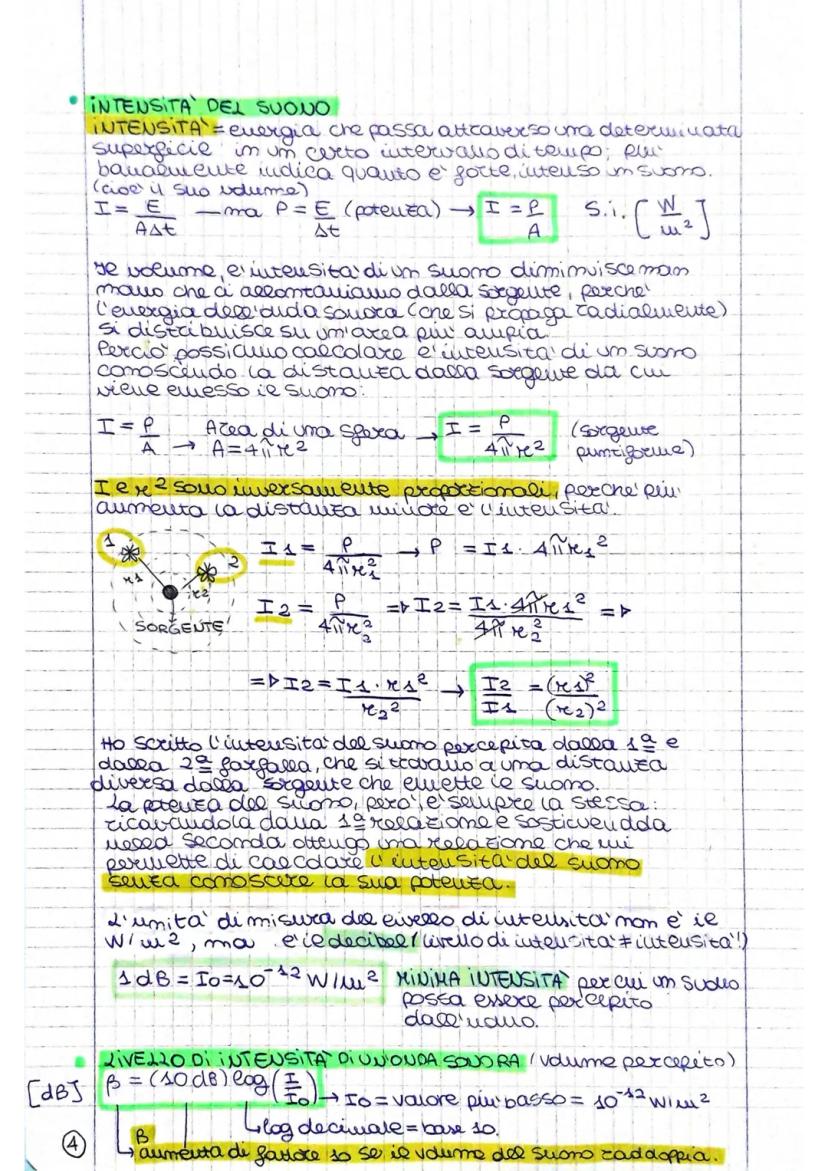 • INTENSITA' DEL SUONO
INTENSITA' = energia che passa attraverso una determinata
superficie in un certo intervallo di tempo; più
banalmente indica quanto è forte, intenso un suono.
(cioè il suo volume)
I = E/AΔt — ma P = E/Δt (potenza) → I = P/A S.i. [W/m²]
Il volume, e l'intensità di un suono diminuisce man
mano che ci allontaniamo dalla sorgente, perché
l'energia dell'onda sonora (che si propaga radialmente)
si distribuisce su un'area più ampia.
Perciò possiamo calcolare l'intensità di un suono
conoscendo la distanza dalla sorgente da cui
viene emesso il suono:
I = P/A → Area di una sfera A = 4πr² → I = P/4πr² (sorgente puntiforme)
I e r² sono inversamente proporzionali, perché più
aumenta la distanza minore è l'intensità.
1 2 r1 r2 SORGENTE
I1 = P/4πr1² → P = I1 · 4πr1²
I2 = P/4πr2² => I2 = I1 · 4πr1²/4πr2² =>
=> I2 = I1 · r1²/r2² → I2/I1 = (r1)²/(r2)²
Ho scritto l'intensità del suono percepita dalla 1ª e
dalla 2ª farfalla, che si trovano a una distanza
diversa dalla sorgente che emette il suono.
La potenza del suono, però, è sempre la stessa:
ricavandola dalla 1ª relazione e sostituendola
nella seconda ottengo una relazione che mi
permette di calcolare l'intensità del suono
senza conoscere la sua potenza.
L'unità di misura del livello di intensità non è il
W/m², ma è il decibel (livello di intensità ≠ intensità!)
1 dB = I0 = 10⁻¹² W/m² MINIMA INTENSITA' per cui un suono
possa essere percepito
dall'uomo.
• LIVELLO DI INTENSITA' DI UN'ONDA SONORA (volume percepito)
[dB] β = (10 dB) log (I/I0) → I0 = valore più basso = 10⁻¹² W/m²
log decimale = base 10.
β
aumenta di fattore 10 se il volume del suono raddoppia.
4